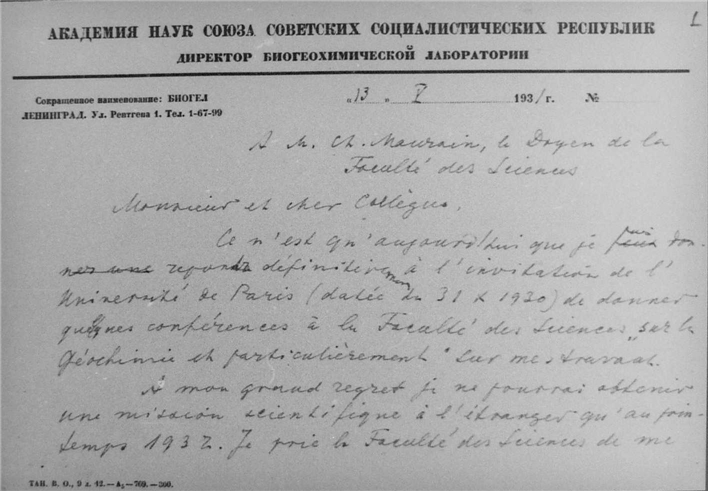 1
АКАДЕМИЯ НАУК СОЮЗА СОВЕТСКИХ СОЦИАЛИСТИЧЕСКИХ РЕСПУБЛИК
ДИРЕКТОР БИОГЕОХИМИЧЕСКОЙ ЛАБОРАТОРИИ
Сокращенное наименование: БИОГЕЛ
„13 „ V 1931 г. №
ЛЕНИНГРАД. Ул. Рентгена 1. Тел. 1-67-99
A M. Ch. Maurain, le Doyen de la
Faculté des Sciences
Monsieur et cher Collègue,
Ce n'est qu'aujourd'hui que je puis
définitivement à l'invitation de l'
Université de Paris (datée du 31 X 1930) de donner
quelques conférences à la Faculté des Sciences „sur la
Géochimie et particulièrement" sur mes travaux.
A mon grand regret je ne pourrai obtenir
une mission scientifique à l'étranger qu'au prin-
temps 1932. Je prie la Faculté des Sciences de me
ТАН. В. О., 9 л. 12.—А₅—769.—300.